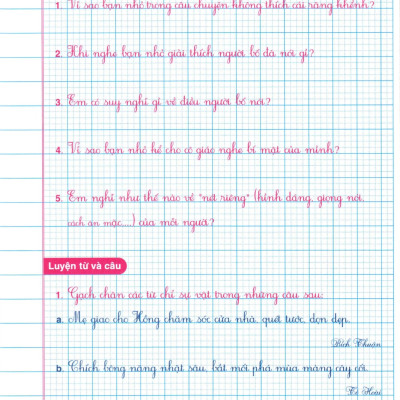 1. Vì sao bạn nhỏ trong câu chuyện không thích cái răng khểnh?
2. Khi nghe bạn nhỏ giải thích người bố đã nói gì?
3. Em có suy nghĩ gì về điều người bố nói?
4. Vì sao bạn nhỏ kể cho cô giáo nghe bí mật của mình?
5. Em nghĩ như thế nào về "nét riêng" (hình dáng, giọng nói,
cách ăn mặc,...) của mỗi người?
Luyện từ và câu
1. Gạch chân các từ chỉ sự vật trong những câu sau:
a. Mẹ giao cho Hồng chăm sóc cửa nhà, quét tước, dọn dẹp.
Bích Thuận
b. Thích bông nàng nhặt sâu, bắt mối phá mùa màng cây cối.
Tô Hoài